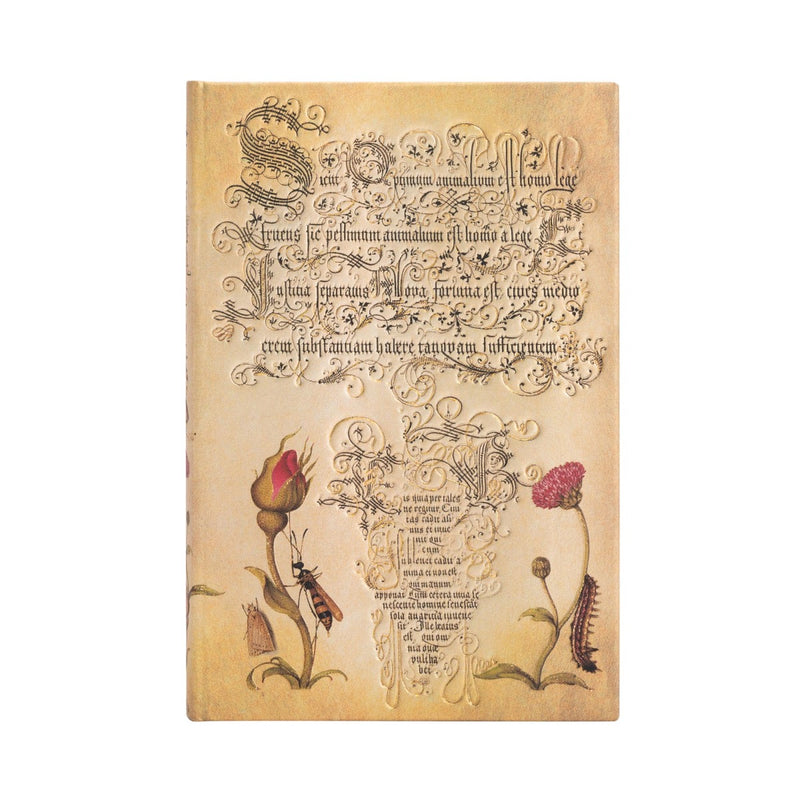 Sicut Optimum animalium est homo lege
fruens sic pessimum animalium est homo a lege Et
Justitia separatus Nova fortuna est, cives medio
crem substantiam habere tanquam sufficientem
Iis quia per tales
ne regitur, Civi
tas cadit asi
nus et inve
nit qui
cum
sublevet cadit a
nima et non est
qui manum
apponat Cum cetera vitia se
nescente homine senescat
sola avaritia iuvene
scit
est qui om
nia